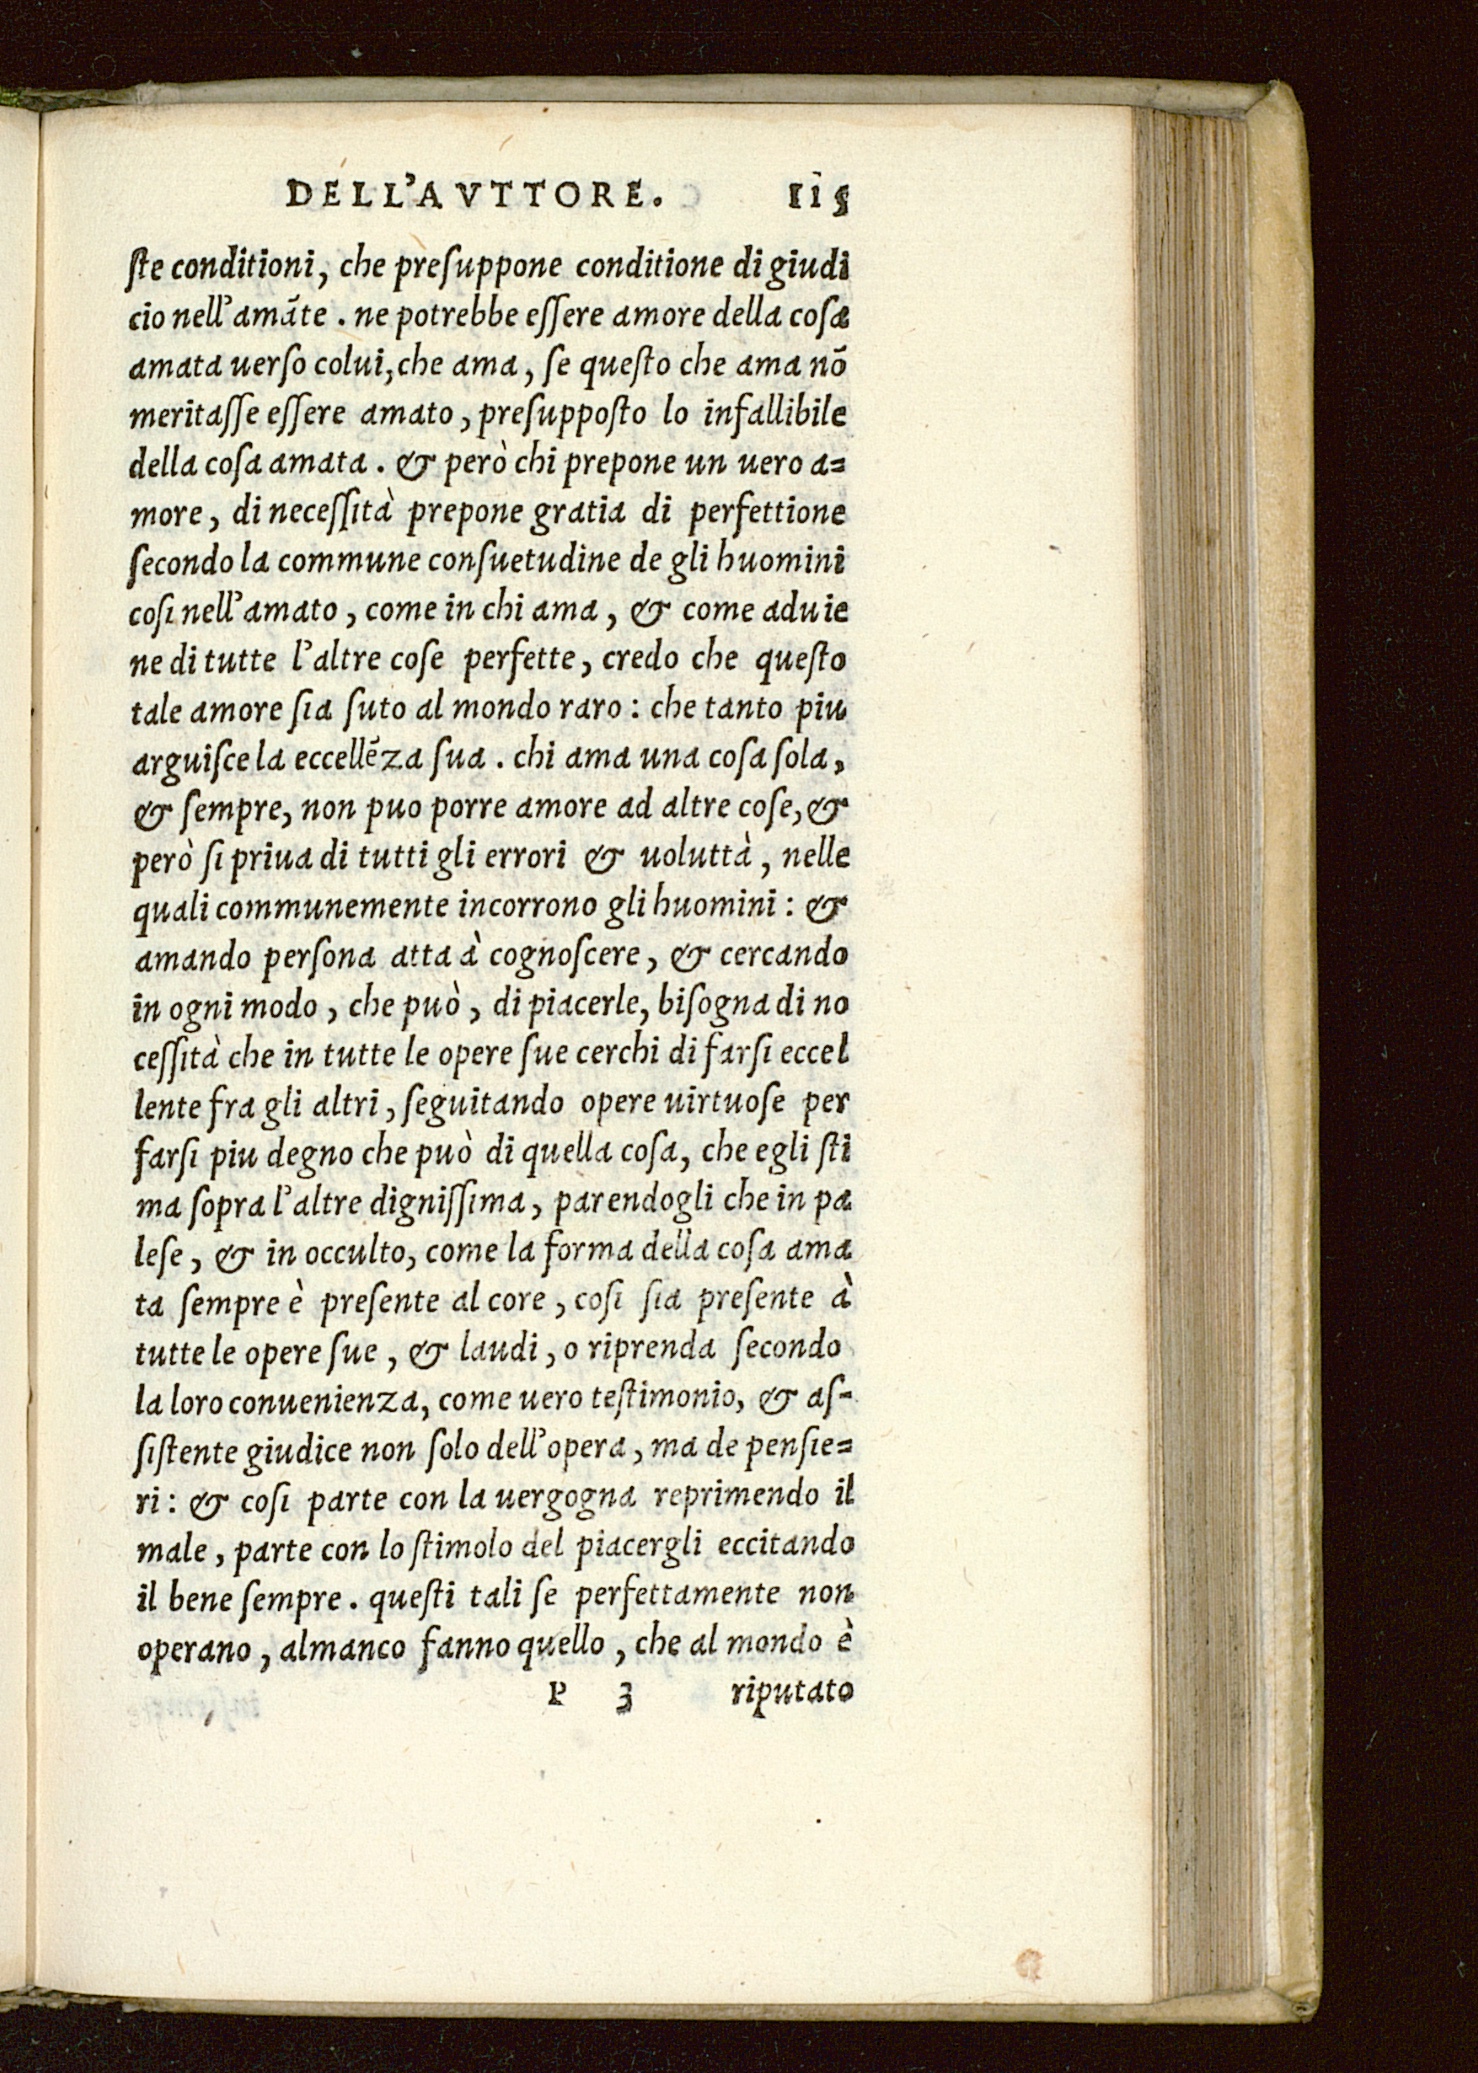 DELL'AVTTORE. 115
ſte conditioni, che preſuppone conditione di giudi
cio nell'amãte. ne potrebbe eſſere amore della coſa
amata uerſo colui, che ama, ſe queſto che ama nõ
meritaſſe eſſere amato, preſuppoſto lo infallibile
della coſa amata. & però chi prepone un uero a=
more, di neceſſità prepone gratia di perfettione
ſecondo la commune conſuetudine de gli huomini
coſi nell'amato, come in chi ama, & come aduie
ne di tutte l'altre coſe perfette, credo che queſto
tale amore ſia ſuto al mondo raro: che tanto piu
arguiſce la eccellẽza ſua. chi ama una coſa ſola,
& ſempre, non puo porre amore ad altre coſe, &
però ſi priua di tutti gli errori & uoluttà, nelle
quali communemente incorrono gli huomini: &
amando perſona atta à cognoſcere, & cercando
in ogni modo, che può, di piacerle, biſogna di no
ceſſità che in tutte le opere ſue cerchi di farſi eccel
lente fra gli altri, ſeguitando opere uirtuoſe per
farſi piu degno che può di quella coſa, che egli ſti
ma ſopra l'altre digniſſima, parendogli che in pa
leſe, & in occulto, come la forma della coſa ama
ta ſempre è preſente al core, coſi ſia preſente à
tutte le opere ſue, & laudi, o riprenda ſecondo
la loro conuenienza, come uero teſtimonio, & aſ-
ſiſtente giudice non ſolo dell'opera, ma de penſie=
ri: & coſi parte con la uergogna reprimendo il
male, parte con lo ſtimolo del piacergli eccitando
il bene ſempre. queſti tali ſe perfettamente non
operano, almanco fanno quello, che al mondo è
P 3 riputato